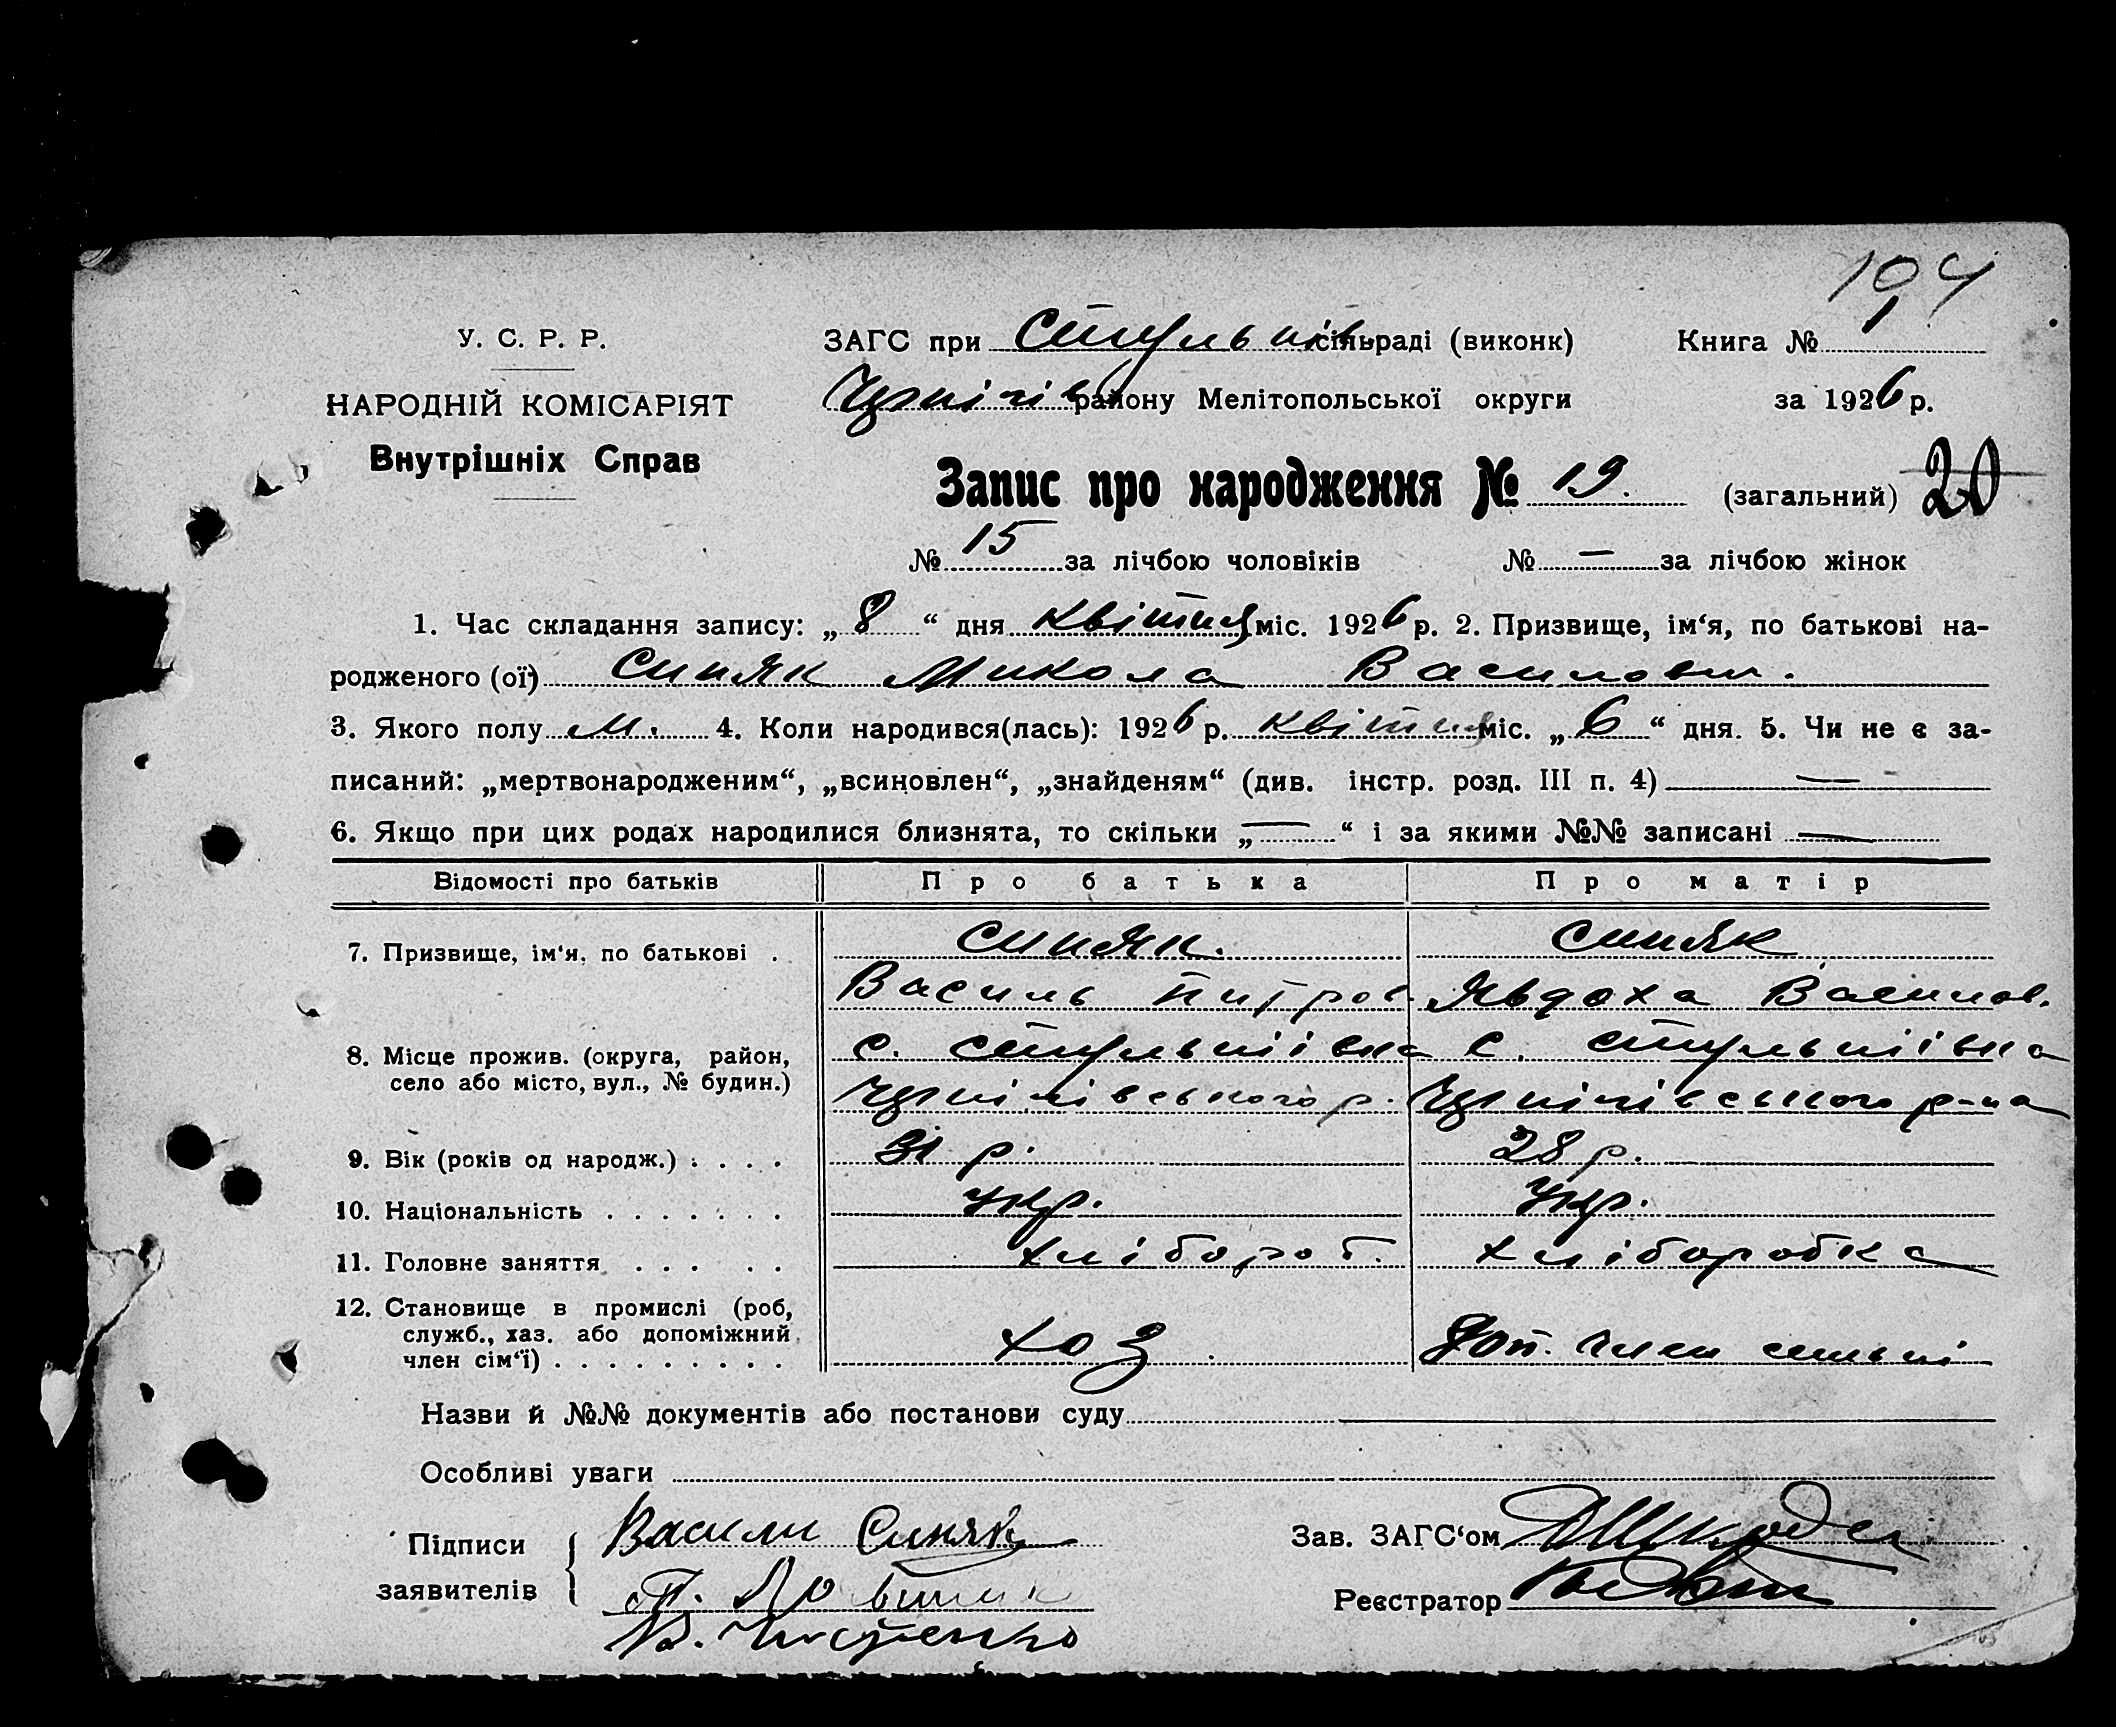 104
У. С. Р. Р.
НАРОДНІЙ КОМІСАРІЯТ
Внутрішніх Справ
ЗАГС при Стульнів сільраді (виконк) Книга № 1
Черніговс району Мелітопольської округи за 1926 р.
Запис про народження № 19. (загальний) 20
№ 15 за лічбою чоловіків № — за лічбою жінок
1. Час складання запису: „ 8 “ дня Квітня міс. 1926 р. 2. Призвище, ім‘я, по батькові на-
родженого (ої) Синяк Микола Василови.
3. Якого полу м. 4. Коли народився(лась): 1926 р. Квітня міс. „ 6 “ дня. 5. Чи не є за-
писаний: „мертвонародженим“, „всиновлен“, „знайденям“ (див. інстр. розд. III п. 4) —
6. Якщо при цих родах народилися близнята, то скільки „ — “ і за якими №№ записані —
Відомості про батьків Про батька Про матір
7. Призвище, ім‘я, по батькові . Синяк. Синяк
Василь Питров. Явдоха Василов.
8. Місце прожив. (округа, район, с. Стульніівка с. Стульніівка
село або місто, вул., № будин.) Чернігівського р. Чернігівського р-на
9. Вік (років од народж.) . . . . 31 р. 28 р.
10. Національність . . . . . . . Укр. Укр.
11. Головне заняття . . . . . хлібороб. хліборобка
12. Становище в промислі (роб,
служб., хаз. або допоміжний
член сім‘ї) . . . . . . . . . хоз. Доп. член семьні
Назви й №№ документів або постанови суду
Особливі уваги
Підписи заявителів Васили Синяк
Зав. ЗАГС‘ом
Реєстратор